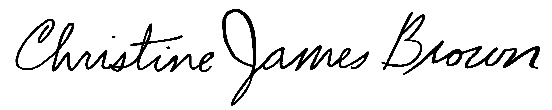 Christine James Brown